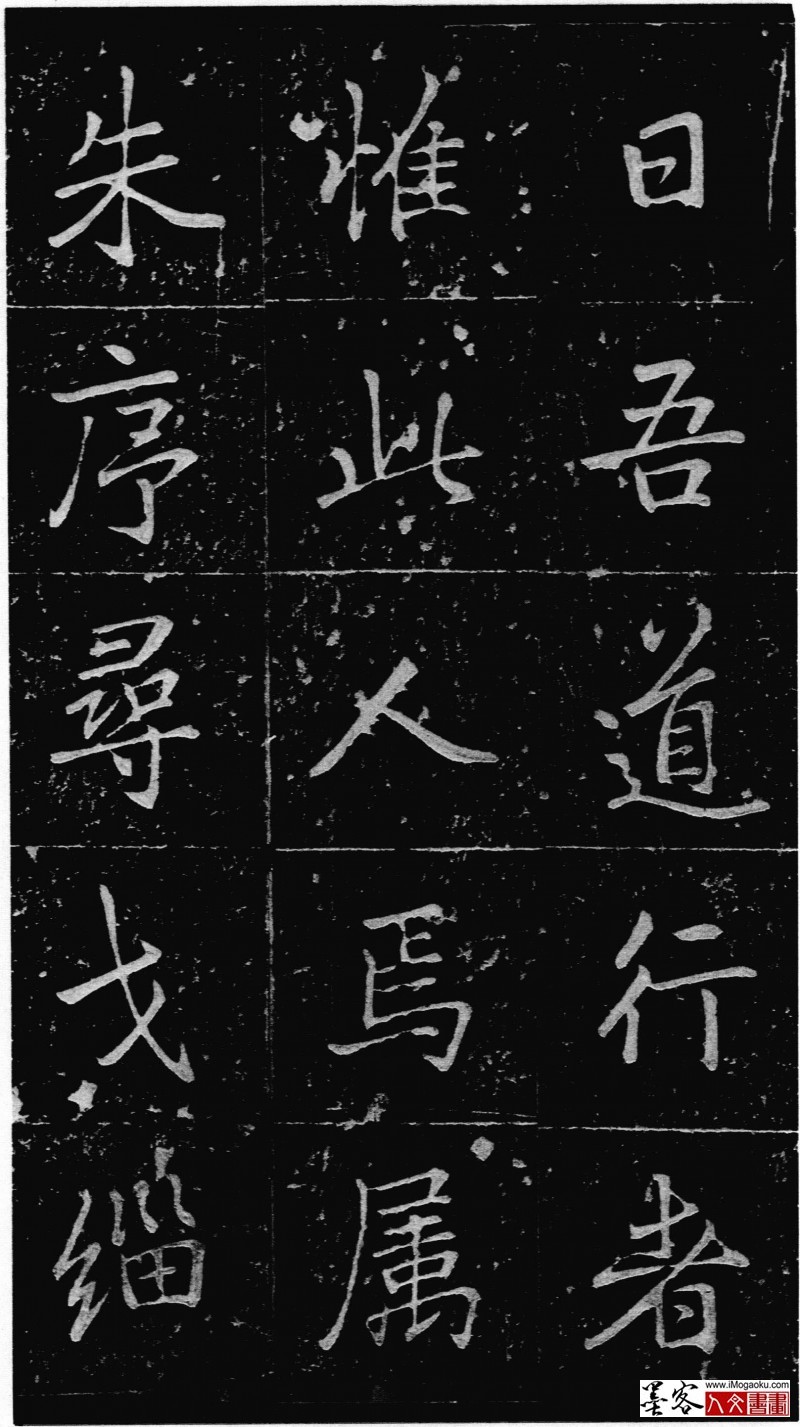 曰吾道行者
惟此人焉属
朱序尋戈緇
墨客
www.iMogaoku.com
人文書畫